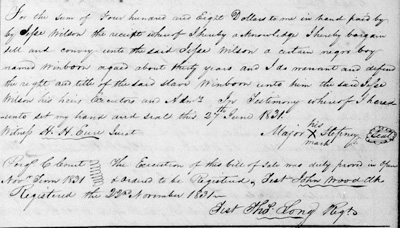 For the Sum of Four hundred and Eight Dollars to me in hand paid by
by Jesse Wilson the receipt whereof I hereby acknowledge I hereby bargain
sell and convey unto the said Jesse Wilson a certain negro boy
named Winborn agaed about thirty years and I do warrant and defend
the right and title of the said slave Winborn unto him the said Jesse
Wilson his heirs Executors and Admrs In Testimony whereof I hereto
unto set my hand and seals this 27th June 1831
Witness H. H. Eure Jurat Major his X mark Seal
Perqs C. Court The Execution of this bill of Sale was duly proved in Open
Novr Term 1831 & ordered to be Registered, Test John Wood Clk
Registered the 22nd November 1831
Test Thos Long Regtr